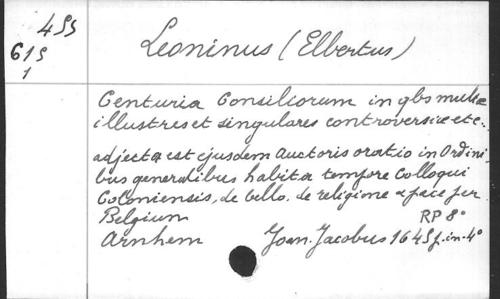 455
615
1
Leoninus (Elbertus)
Centuria Consiliorum in qbs multæ
illustres et singulares controversiæ etc.
adjecta est ejusdem auctoris oratio in Ordini
bus generalibus habita tempore Colloqui
Coloniensis, de bello, de religione & pace per
Belgium RP 8°
Arnhem Joan. Jacobus 1645 f. in-4°